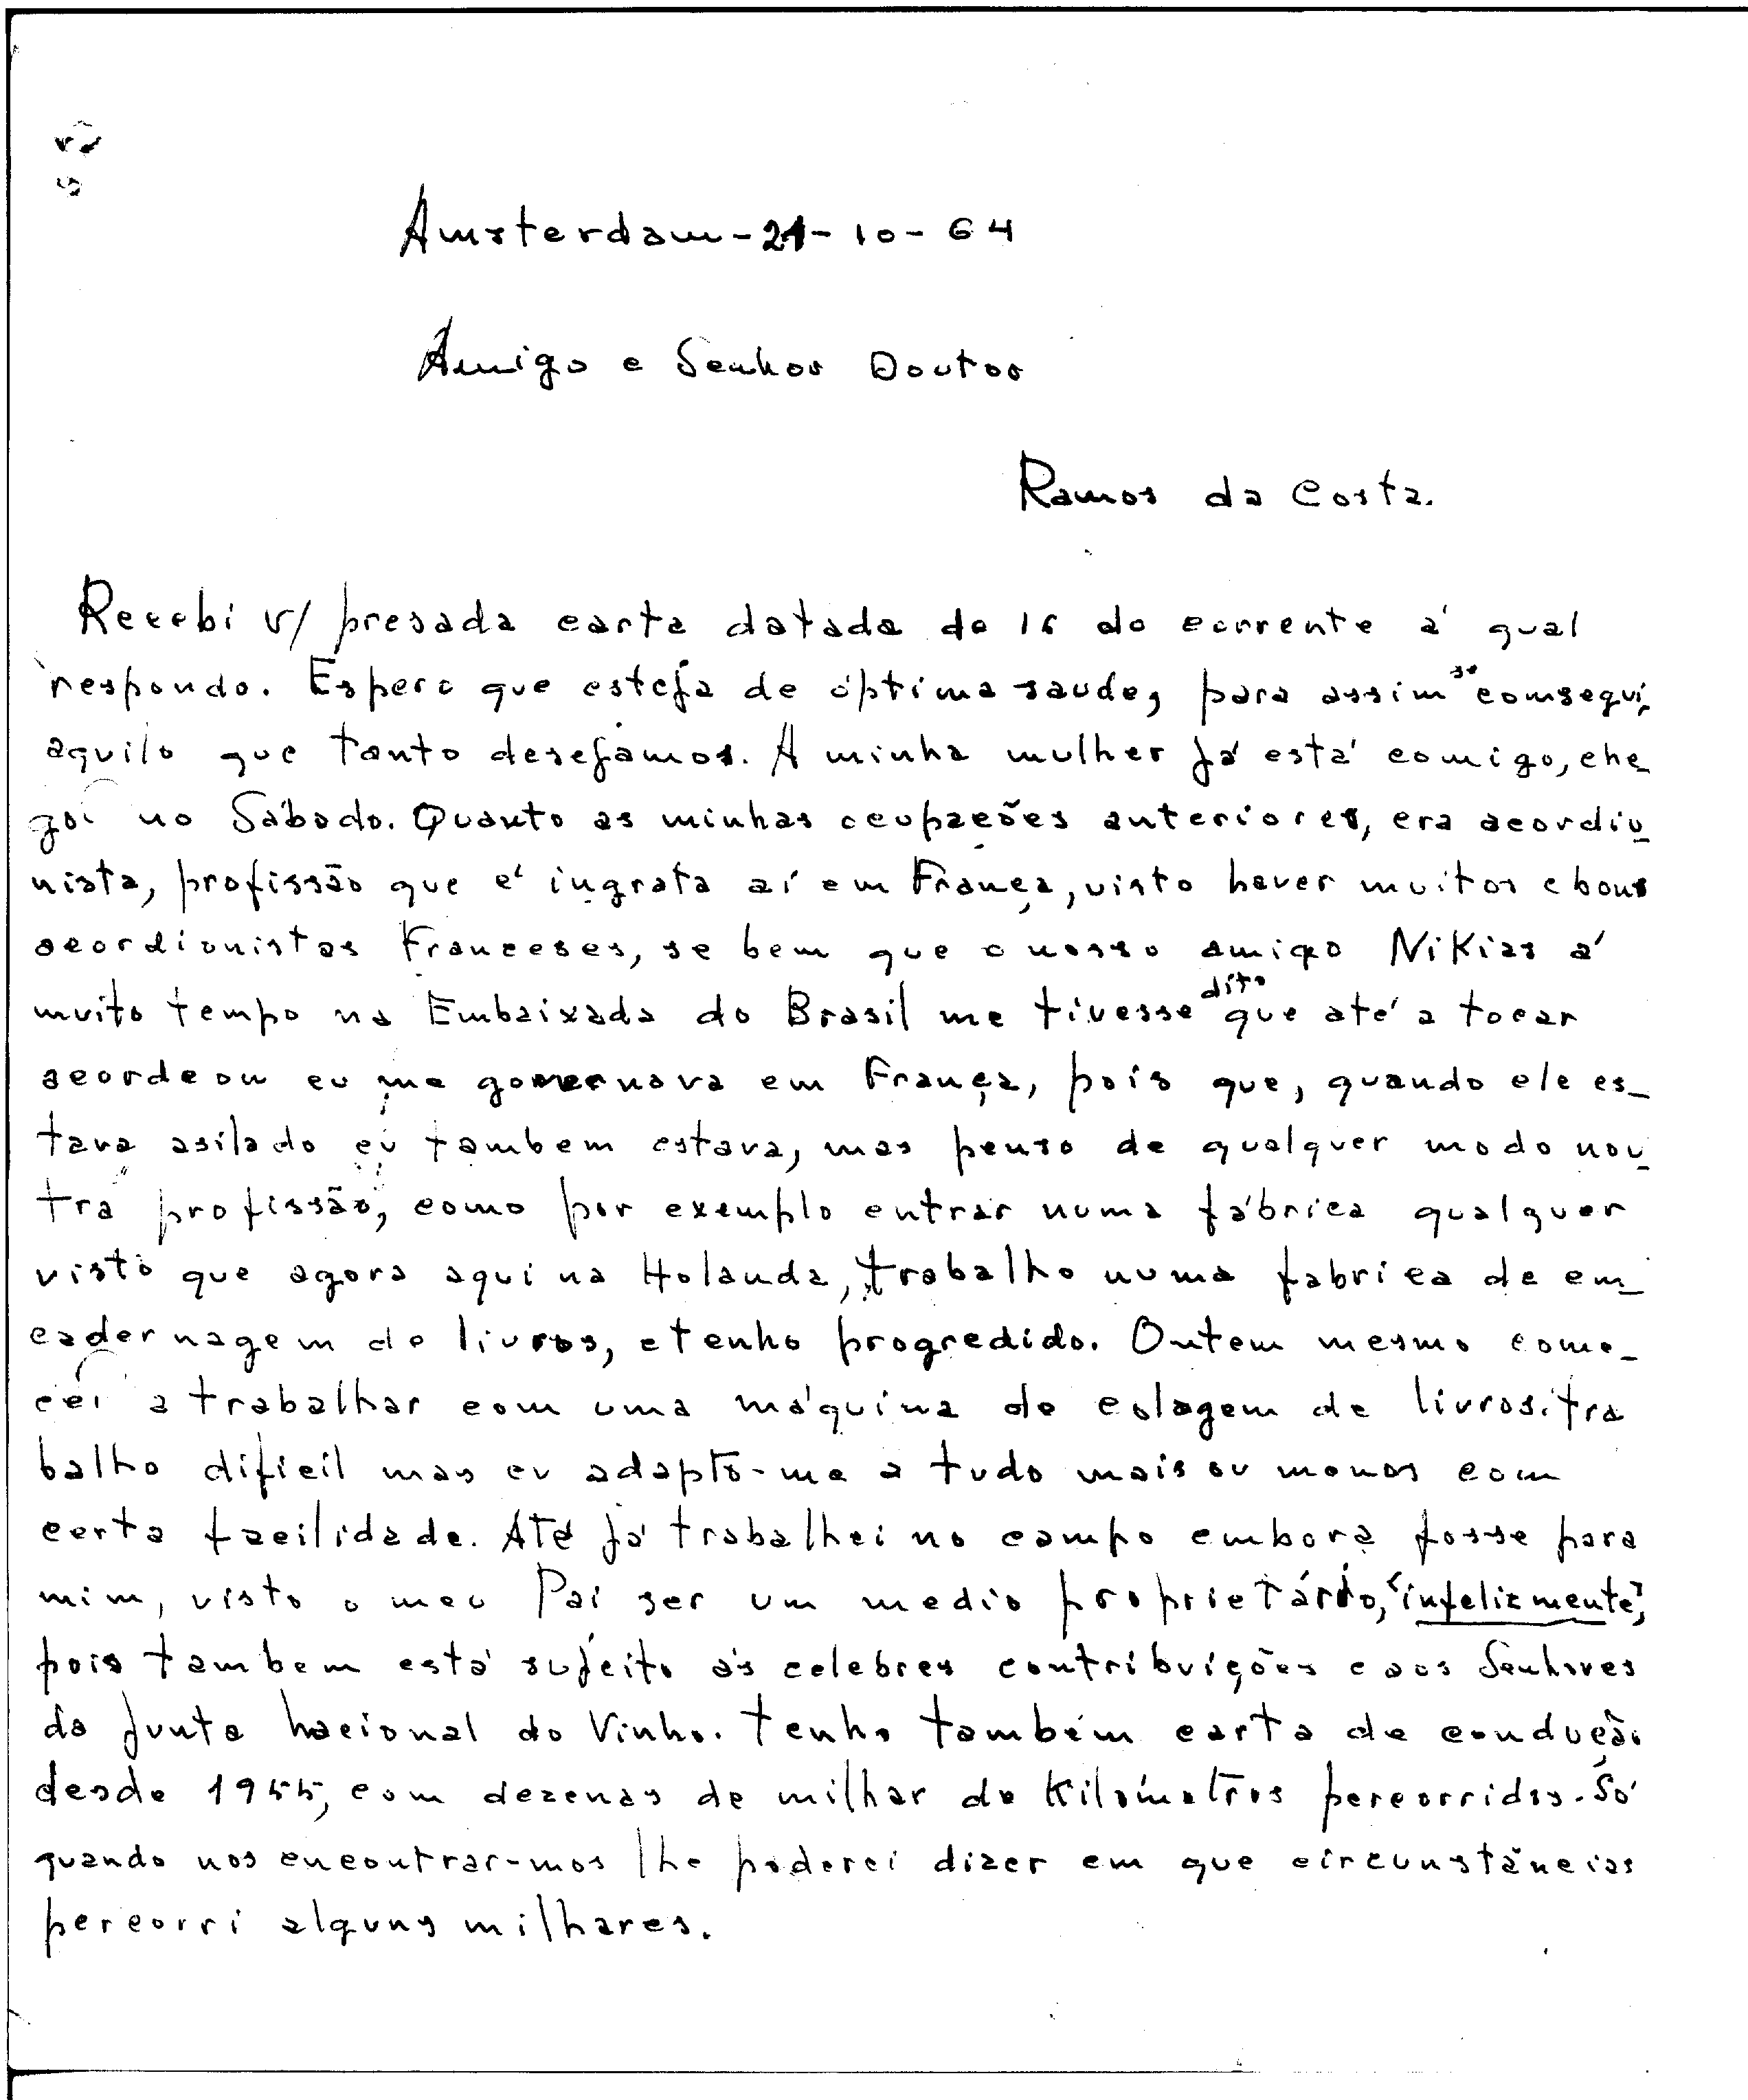 Amsterdam - 21 - 10 - 64
Amigo e Senhor Doutor
Ramos da Costa.
Recebi v/ presada carta datada de 16 do corrente á qual
respondo. Espero que esteja de óptima saude, para assim se comseguir
aquilo que tanto desejamos. A minha mulher já está comigo, che
gou no Sábado. Quanto as minhas ocupações anteriores, era acordio
nista, profissão que é ingrata aí em França, visto haver muitos e bons
acordionistas Franceses, se bem que o nosso amigo Nikias á
muito tempo na Embaixada do Brasil me tivesse dito que até a tocar
acordeon eu me governava em França, pois que, quando ele es-
tava asilado eu tambem estava, mas penso de qualquer modo nou
tra profissão, como por exemplo entrar numa fábrica qualquer
visto que agora aqui na Holanda, trabalho numa fabrica de em-
cadernagem de livros, e tenho progredido. Ontem mesmo come-
cei a trabalhar com uma máquina de colagem de livros, tra
balho dificil mas eu adapto-me a tudo mais ou menos com
certa facilidade. Até já trabalhei no campo embora fosse para
mim, visto o meu Pai ser um medio proprietário, "infelizmente",
pois tambem está sujeito ás celebres contribuições e aos Senhores
da Junta Nacional do Vinho. Tenho também carta de condução
desde 1955, com dezenas de milhar de Kilómetros percorridos. Só
quando nos encontrar-mos lhe poderei dizer em que circunstâncias
percorri alguns milhares.